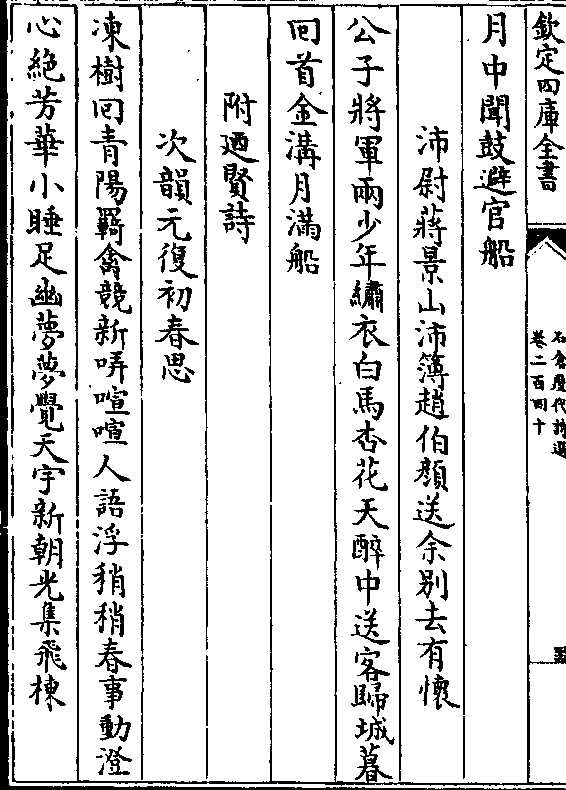 欽定四庫全書
石倉歷代詩選
卷二百四十
月中聞鼓避官船
沛尉蔣景山沛簿趙伯顏送余别去有懷
公子將軍兩少年繡衣白馬杏花天醉中送客歸城暮
回首金溝月滿船
附廼賢詩
次韻元復初春思
凍樹回青陽羈禽競新哢喧喧人語浮稍稍春事動澄
心絶芳華小睡足幽夢夢覺天宇新朝光集飛棟